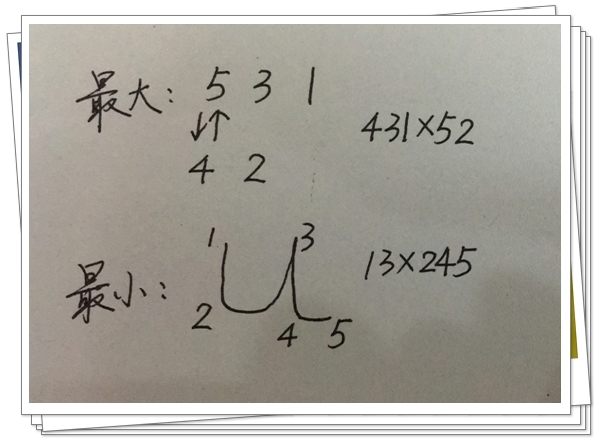 最大: 5 3 1
↓↑
4 2
431×52
最小: 1 3
2 4 5
13×245